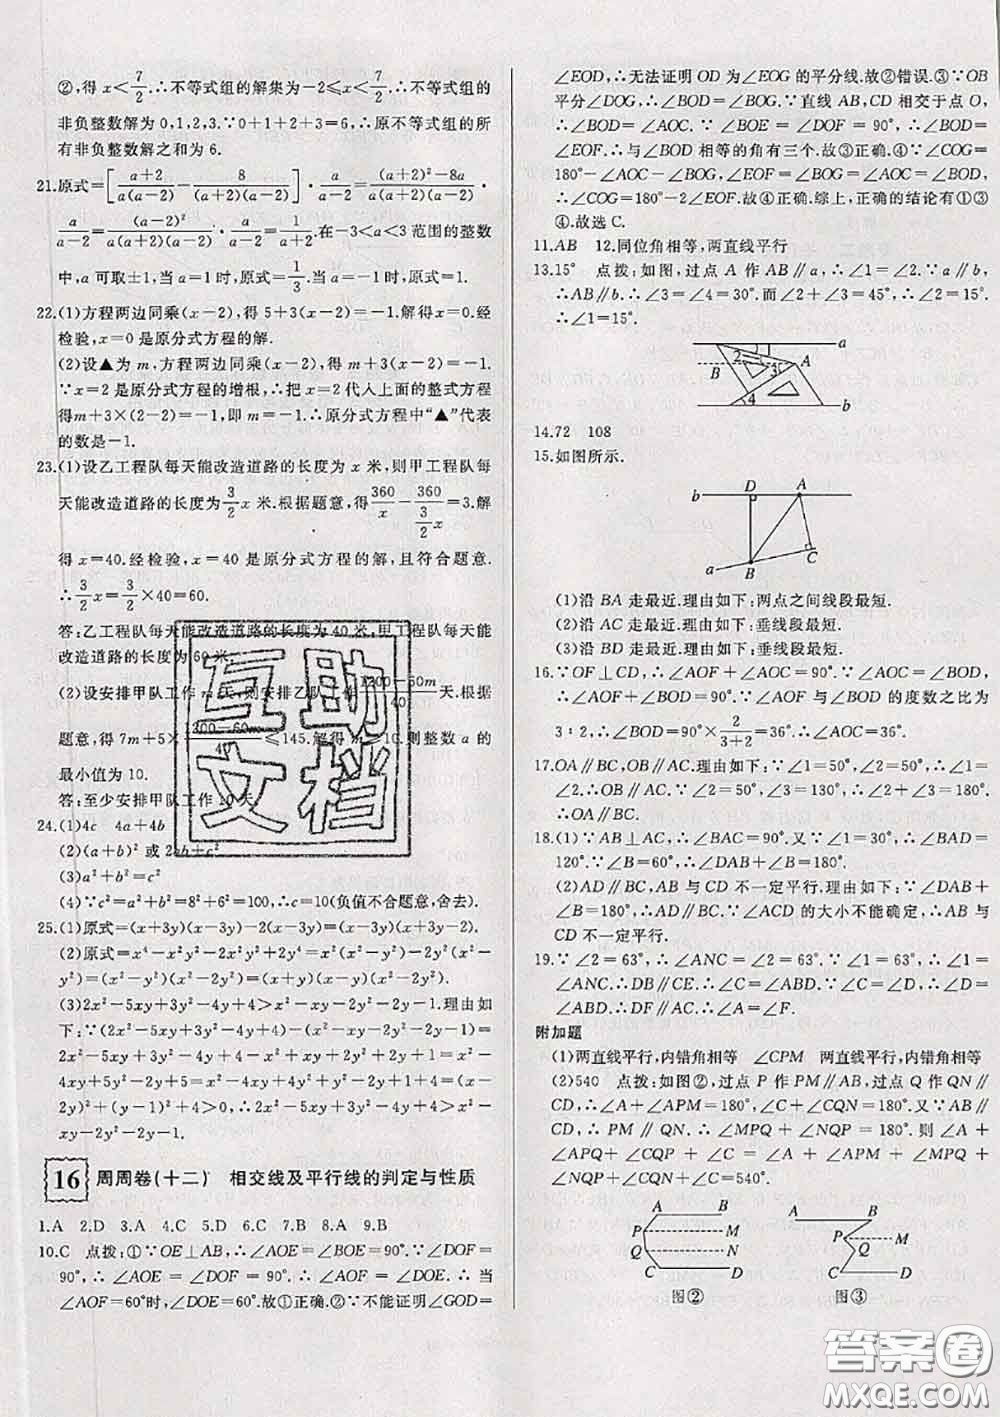 ②,得 x<7/2.∴不等式组的解集为-2≤x<7/2.∴不等式组的
非负整数解为 0,1,2,3.∵0+1+2+3=6,∴原不等式组的所
有非负整数解之和为 6.
21.原式=[(a+2)/(a(a-2))-8/((a+2)(a-2))]·a/(a-2)=((a+2)²-8a)/(a(a+2)(a-2))·
a/(a-2)=(a-2)²/(a(a+2)(a-2))·a/(a-2)=1/(a+2).在-3<a<3 范围的整数
中,a 可取±1,当 a=1 时,原式=1/3.当 a=-1 时,原式=1.
22.(1)方程两边同乘(x-2),得 5+3(x-2)=-1.解得x=0.经
检验,x=0 是原分式方程的解.
(2)设▲为 m,方程两边同乘(x-2),得 m+3(x-2)=-1.
∵x=2 是原分式方程的增根,∴把 x=2 代人上面的整式方程
得m+3×(2-2)=-1,即 m=-1.∴原分式方程中“▲”代表
的数是-1.
23.(1)设乙工程队每天能改造道路的长度为 x 米,则甲工程队每
天能改造道路的长度为 3/2 x 米.根据题意,得 360/x-360/(3/2 x)=3.解
得 x=40.经检验,x=40 是原分式方程的解,且符合题意.
∴3/2 x=3/2×40=60.
答:乙工程队每天能改造道路的长度为 40 米,甲工程队每天能
改造道路的长度为 60 米.
(2)设安排甲队工作 m 天,则安排乙队工作 (1200-60m)/40 天.根据
题意,得 7m+5×(1200-60m)/40≤145.解得 m≥10.则整数 a 的
最小值为 10.
答:至少安排甲队工作 10 天.
24.(1)4c 4a+4b
(2)(a+b)² 或 2ab+c²
(3)a²+b²=c²
(4)∵c²=a²+b²=8²+6²=100,∴c=10(负值不合题意,舍去).
25.(1)原式=(x+3y)(x-3y)-2(x-3y)=(x-3y)(x+3y-2).
(2)原式=x⁴-x²y²-x²y²+y⁴=x²(x²-y²)-y²(x²-
y²)=(x²-y²)(x²-y²)=(x+y)(x-y)(x²-y²).
(3)2x²-5xy+3y²-4y+4>x²-xy-y²-2y-1.理由如
下:∵(2x²-5xy+3y²-4y+4)-(x²-xy-y²-2y-1)=
2x²-5xy+3y²-4y+4-x²+xy+y²+2y+1=x²-
4xy+5y²-2y+5=x²-4xy+4y²+y²-2y+1+4=(x-
2y)²+(y-1)²+4>0,∴2x²-5xy+3y²-4y+4>x²-
xy-y²-2y-1.
16 周周卷(十二) 相交线及平行线的判定与性质
1.A 2.D 3.A 4.C 5.D 6.C 7.B 8.A 9.B
10.C 点拨:①∵OE⊥AB,∴∠AOE=∠BOE=90°.∵∠DOF=
90°,∴∠AOE=∠DOF.∴∠AOF=∠DOE.∴当
∠AOF=60°时,∠DOE=60°.故①正确.②∵不能证明∠GOD=
∠EOD,∴无法证明 OD 为∠EOG 的平分线.故②错误.③∵OB
平分∠DOG,∴∠BOD=∠BOG.∵直线 AB,CD 相交于点 O,
∴∠BOD=∠AOC.∵∠BOE=∠DOF=90°,∴∠BOD=
∠EOF.∴与∠BOD 相等的角有三个.故③正确.④∵∠COG=
180°-∠AOC-∠BOG,∠EOF=∠BOG=∠AOC,
∴∠COG=180°-2∠EOF.故④正确.综上,正确的结论有①③
④.故选 C.
11.AB 12.同位角相等,两直线平行
13.15° 点拨:如图,过点 A 作 AB∥a,∴∠1=∠2.∵a∥b,
∴AB∥b.∴∠3=∠4=30°.而∠2+∠3=45°,∴∠2=15°.
∴∠1=15°.
1 a
2
B 3 A
4 b
14.72 108
15.如图所示.
D A
b
a B C
(1)沿 BA 走最近.理由如下:两点之间线段最短.
(2)沿 AC 走最近.理由如下:垂线段最短.
(3)沿 BD 走最近.理由如下:垂线段最短.
16.∵OF⊥CD,∴∠AOF+∠AOC=90°.∵∠AOC=∠BOD,
∴∠AOF+∠BOD=90°.∵∠AOF 与∠BOD 的度数之比为
3∶2,∴∠BOD=90°×2/(3+2)=36°.∴∠AOC=36°.
17.OA∥BC,OB∥AC.理由如下:∵∠1=50°,∠2=50°,∴∠1=
∠2.∴OB∥AC.∵∠2=50°,∠3=130°,∴∠2+∠3=180°.
∴OA∥BC.
18.(1)∵AB⊥AC,∴∠BAC=90°.又∵∠1=30°,∴∠BAD=
120°.∵∠B=60°,∴∠DAB+∠B=180°.
(2)AD∥BC,AB 与 CD 不一定平行.理由如下:∵∠DAB+
∠B=180°,∴AD∥BC.∵∠ACD 的大小不能确定,∴AB 与
CD 不一定平行.
19.∵∠2=63°,∴∠ANC=∠2=63°.∵∠1=63°,∴∠1=
∠ANC.∴DB∥CE.∴∠C=∠ABD.∵∠C=∠D,∴∠D=
∠ABD.∴DF∥AC.∴∠A=∠F.
附加题
(1)两直线平行,内错角相等 ∠CPM 两直线平行,内错角相等
(2)540 点拨:如图②,过点 P 作 PM∥AB,过点 Q 作 QN∥
CD,∴∠A+∠APM=180°,∠C+∠CQN=180°.又∵AB∥
CD,∴PM∥QN.∴∠MPQ+∠NQP=180°.则∠A+
∠APQ+∠CQP+∠C=∠A+∠APM+∠MPQ+
∠NQP+∠CQN+∠C=540°.
A B
P M
Q N
C D
图②
A B
P M
Q
C D
图③
互助
文档
答案圈
MXQE.COM